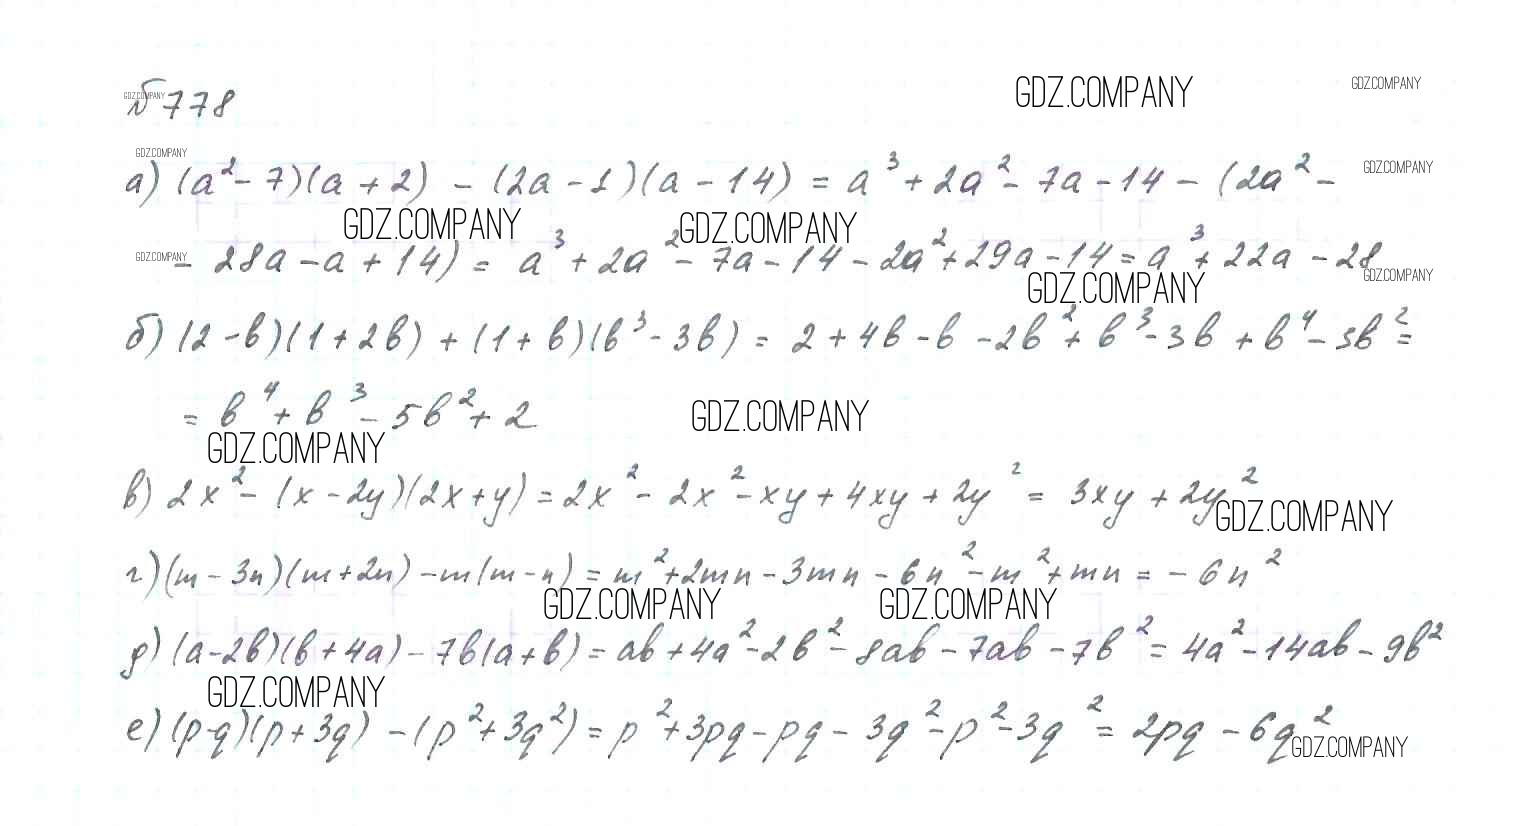 GDZ.COMPANY GDZ.COMPANY
GDZ.COMPANY
№778
GDZ.COMPANY GDZ.COMPANY
а) (a² - 7)(a + 2) - (2a - 1)(a - 14) = a³ + 2a² - 7a - 14 - (2a² -
GDZ.COMPANY GDZ.COMPANY
GDZ.COMPANY
- 28a - a + 14) = a³ + 2a² - 7a - 14 - 2a² + 29a - 14 = a³ + 22a - 28
GDZ.COMPANY GDZ.COMPANY
б) (2 - b)(1 + 2b) + (1 + b)(b³ - 3b) = 2 + 4b - b - 2b² + b³ - 3b + b⁴ - 3b² =
= b⁴ + b³ - 5b² + 2
GDZ.COMPANY
GDZ.COMPANY
в) 2x² - (x - 2y)(2x + y) = 2x² - 2x² - xy + 4xy + 2y² = 3xy + 2y²
GDZ.COMPANY
г) (m - 3n)(m + 2n) - m(m - n) = m² + 2mn - 3mn - 6n² - m² + mn = - 6n²
GDZ.COMPANY GDZ.COMPANY
д) (a - 2b)(b + 4a) - 7b(a + b) = ab + 4a² - 2b² - 8ab - 7ab - 7b² = 4a² - 14ab - 9b²
GDZ.COMPANY
е) (p - q)(p + 3q) - (p² + 3q²) = p² + 3pq - pq - 3q² - p² - 3q² = 2pq - 6q²
GDZ.COMPANY